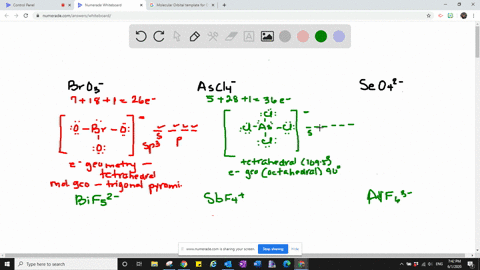 Control Panel
Numerade Whiteboard
Molecular Orbital template for
numerade.com/answers/whiteboard/
BrO3-
7+18+1=26e-
[:Ö-Br-Ö:
:O:]-
s p
sp3
e- geometry – tetrahedral
mol geo – trigonal pyrami
BiF5 2-
AsCl4-
5+28+1=36e-
[:Cl:
:Cl-As-Cl:
:Cl:]-
s
tetrahedral (109.5°)
e- geo (octahedral) 90°
SbF4+
SeO4 2-
F6 3-
numerade.com is sharing your screen.
Stop sharing
Hide
Type here to search
7:42 PM